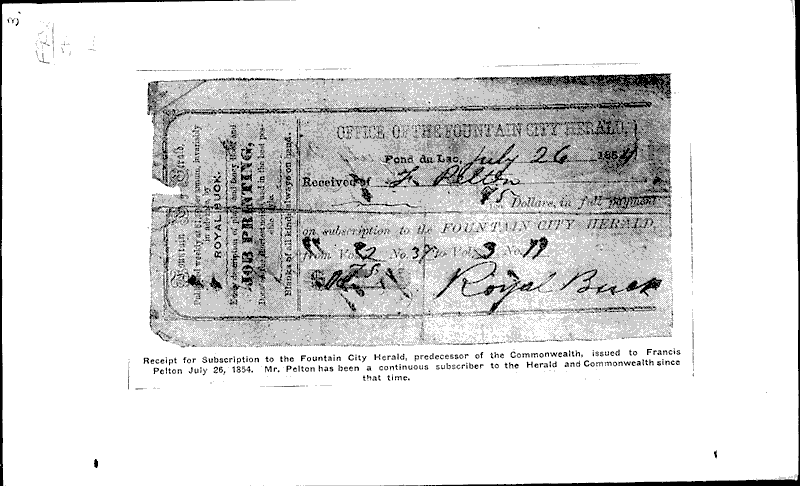 Fountain City Herald,
Published weekly at per annum, invariably
in advance, by
ROYAL BUCK.
Every description of and
JOB PRINTING,
Done on the shortest and in the best
style.
Blanks of all kinds always on hand.
OFFICE OF THE FOUNTAIN CITY HERALD,
Fond du Lac, July 26 1854
Received of F. Pelton
75 Dollars, in full payment
on subscription to the FOUNTAIN CITY HERALD,
from Vol. 2 No. 37 to Vol. 3 No.
75 Royal Buck
Receipt for Subscription to the Fountain City Herald, predecessor of the Commonwealth, issued to Francis
Pelton July 26, 1854. Mr. Pelton has been a continuous subscriber to the Herald and Commonwealth since
that time.